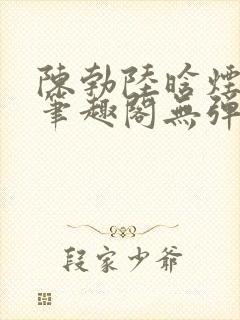 陳勃陸晗煙
筆趣閣無彈
段家少爺